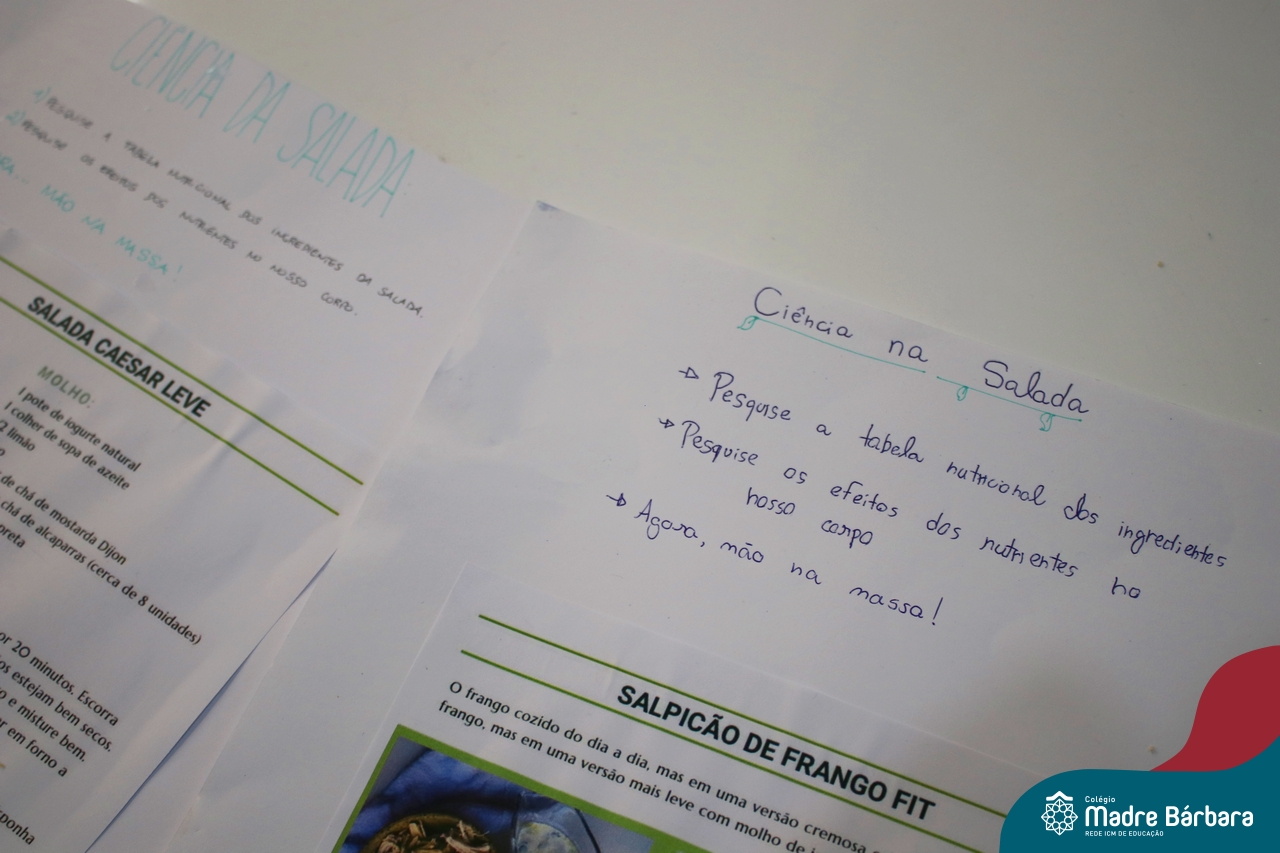 CIÊNCIA DA SALADA
1) PESQUISE A TABELA NUTRICIONAL DOS INGREDIENTES DA SALADA.
2) PESQUISE OS EFEITOS DOS NUTRIENTES NO NOSSO CORPO.
MÃO NA MASSA!
SALADA CAESAR LEVE
MOLHO:
1 pote de iogurte natural
1 colher de sopa de azeite
limão
de chá de mostarda Dijon
chá de alcaparras (cerca de 8 unidades)
preta
por 20 minutos. Escorra
estejam bem secos.
e misture bem.
em forno a
Ciência na Salada
→ Pesquise a tabela nutricional dos ingredientes
→ Pesquise os efeitos dos nutrientes no
nosso corpo
→ Agora, mão na massa!
SALPICÃO DE FRANGO FIT
O frango cozido do dia a dia, mas em uma versão cremosa
frango, mas em uma versão mais leve com molho de
Colégio
Madre Bárbara
REDE ICM DE EDUCAÇÃO